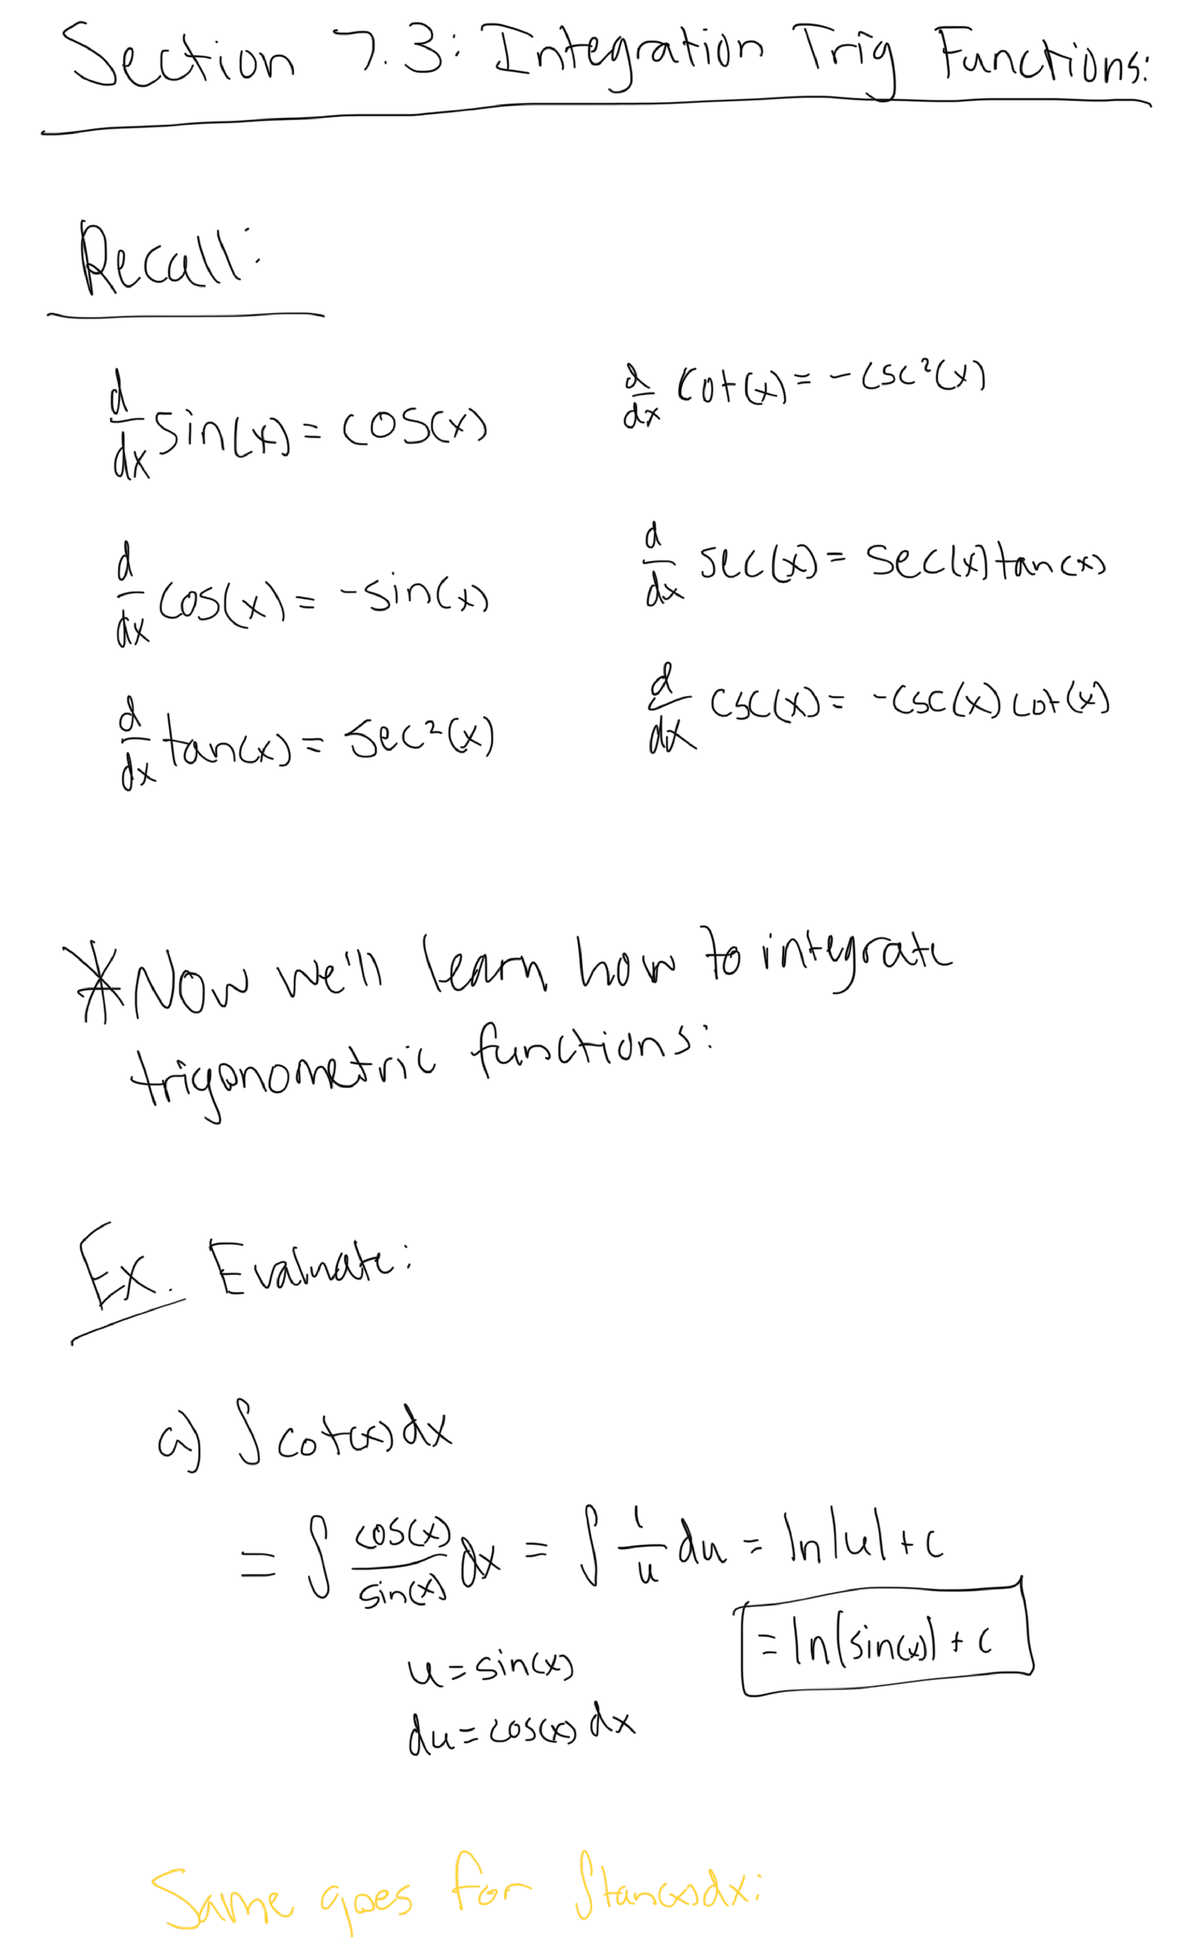 Section 7.3: Integration Trig Functions:
Recall:
d/dx sin(x) = cos(x)
d/dx cot(x) = -csc²(x)
d/dx cos(x) = -sin(x)
d/dx sec(x) = sec(x)tan(x)
d/dx tan(x) = sec²(x)
d/dx csc(x) = -csc(x)cot(x)
* Now we'll learn how to integrate
trigonometric functions:
Ex. Evaluate:
a) ∫cot(x)dx
= ∫ cos(x)/sin(x) dx = ∫ 1/u du = ln|u|+c
= ln|sin(x)| + c
u = sin(x)
du = cos(x) dx
Same goes for ∫tan(x)dx: